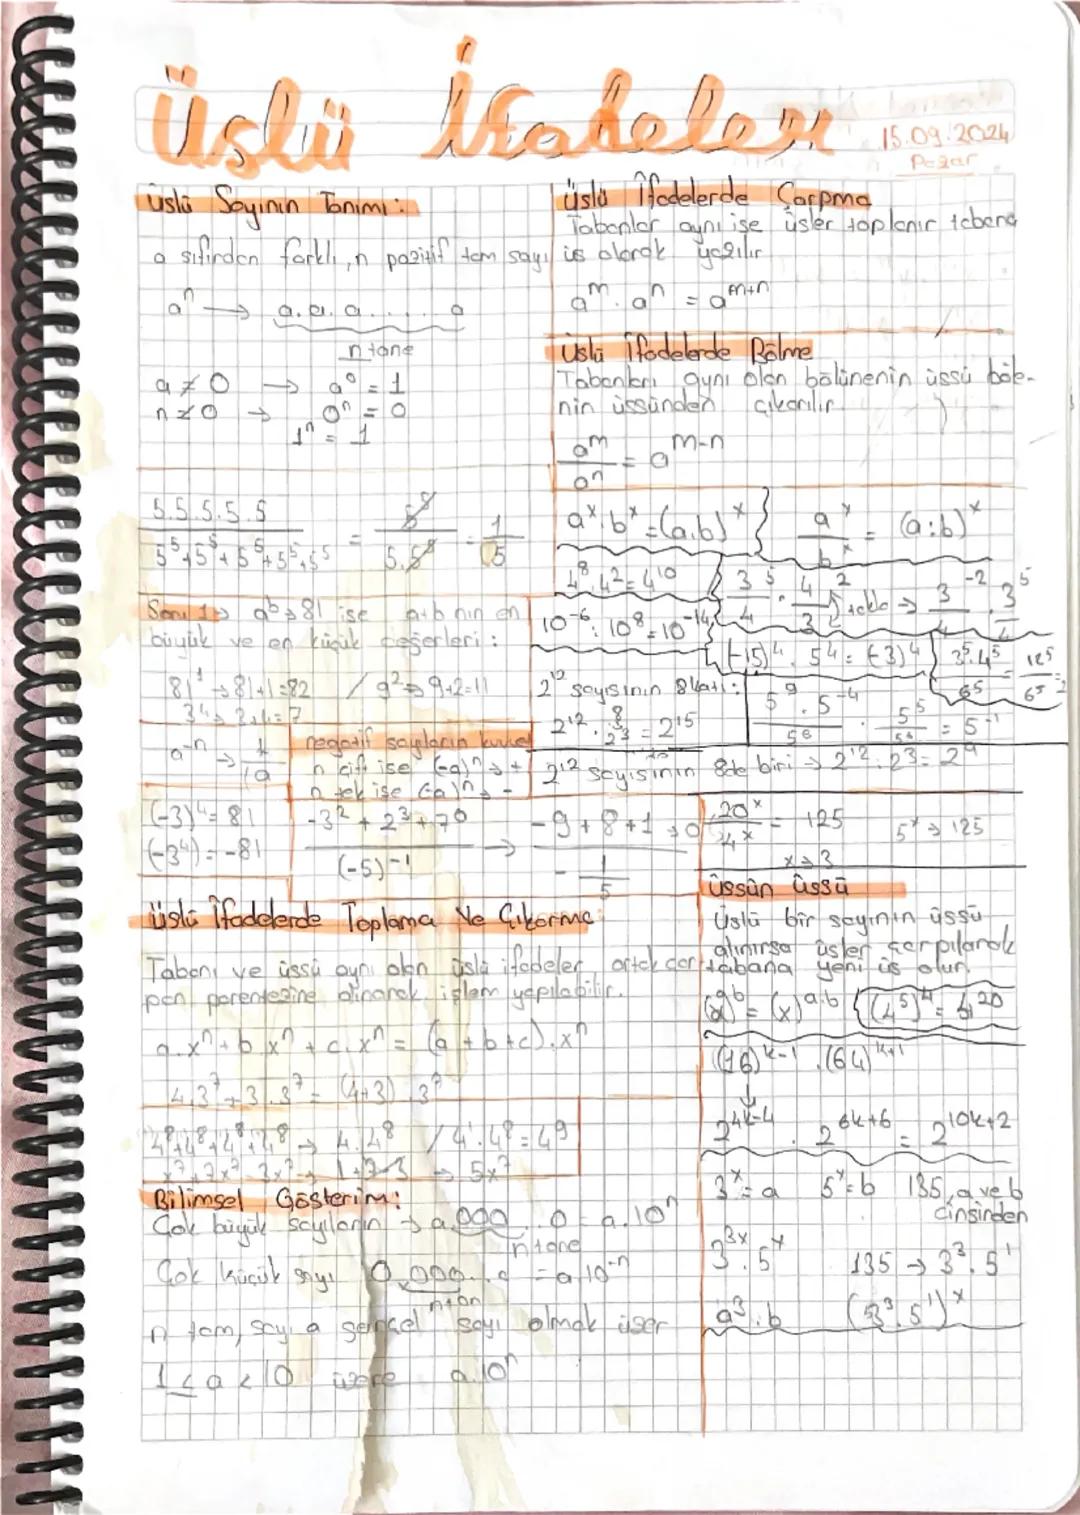 Üslü İfadeler
15.09.2024
Pazar
Üslü Sayının Tanımı:
a sıfırdan farklı, n pozitif tam sayı
aⁿ → a.a.a.....a
n tane
a ≠ 0 → a⁰ = 1
n ≠ 0 → 0ⁿ = 0
1ⁿ = 1
5.5.5.5.5 / 5⁵+5⁵+5⁵+5⁵+5⁵ = 5⁵ / 5.5⁵ = 1/5
Soru 1 → aᵇ → 81 ise a+b nın en
büyük ve en küçük değerleri:
81¹ → 81+1=82 / 9² → 9+2=11
3⁴ → 3+4=7
a⁻ⁿ → 1/a
negatif sayıların kuvvet
n çift ise (-a)ⁿ → +
n tek ise (-a)ⁿ → -
(-3)⁴ = 81
(-3⁴) = -81
-3² + 2³ + 7⁰ / (-5)⁻¹ → -9+8+1 / -1/5 → 0
Üslü İfadelerde Toplama Ve Çıkarma
Tabanı ve üssü aynı olan üslü ifadeler ortak çar
pan parentezine alınarak işlem yapılabilir.
a.xⁿ + b.xⁿ + c.xⁿ = (a+b+c).xⁿ
4.3⁷ + 3.3⁷ = (4+3).3⁷
4⁸+4⁸+4⁸+4⁸ → 4.4⁸ / 4¹.4⁸ = 4⁹
→ 5x⁷
Bilimsel Gösterim:
Çok büyük sayıların → a.000...0 = a.10ⁿ
n tane
Çok küçük sayı 0,000...a = a.10⁻ⁿ
n tan
n tam sayı a gerçel sayı olmak üzer
1 ≤ a < 10 üzere a.10ⁿ
Üslü İfadelerde Çarpma
Tabanlar aynı ise üsler toplanır tabana
üs olarak yazılır
aᵐ . aⁿ = aᵐ⁺ⁿ
Üslü İfadelerde Bölme
Tabanları aynı olan bölünenin üssü böle-
nin üssünden çıkarılır.
aᵐ / aⁿ = aᵐ⁻ⁿ
aˣ.bˣ = (a.b)ˣ
aˣ / bˣ = (a:b)ˣ
4⁸.4² = 4¹⁰
3/4 ⁵ . 4/3 ² takla → 3/4 ⁻² . 3/4 ⁵
10⁻⁶ : 10⁸ = 10⁻¹⁴
(-15)⁴ : 5⁴ = (-3)⁴
2¹² sayısının 8 katı:
2¹² . 8 2³ = 2¹⁵
5⁹ . 5⁻⁴ / 5⁶ . 5⁵ / 5⁶ = 5⁻¹
3⁵.4⁵ / 6⁵ = 12⁵ / 6⁵ = 2
2¹² sayısının 8de biri → 2¹² : 2³ = 2⁹
20ˣ / 4ˣ = 125
5ˣ → 125
x → 3
Üssün Üssü
Üslü bir sayının üssü
alınırsa üsler çarpılarak
tabana yeni üs olur.
= (x)ᵃ·ᵇ
(4⁵)⁴ = 4²⁰
(16)ᵏ⁻¹ . (64)ᵏ⁺¹
2⁴ᵏ⁻⁴ . 2⁶ᵏ⁺⁶ = 2¹⁰ᵏ⁺²
3ˣ = a 5ˣ = b 135, a ve b
cinsinden
3³ˣ . 5ˣ
135 → 3³ . 5¹
a³ . b
(3³ . 5¹)ˣ